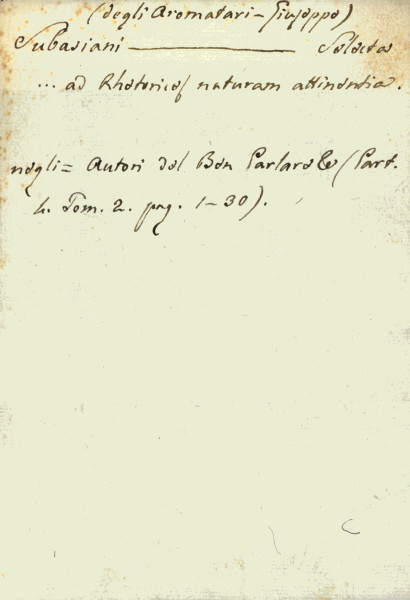 (degli Aromatari - Giuseppe)
Subasiani ——— Selecta
... ad Rhetorices naturam attinentia.
negli = Autori del Ben Parlare &c (Part.
4. Tom. 2. pag. 1-30).